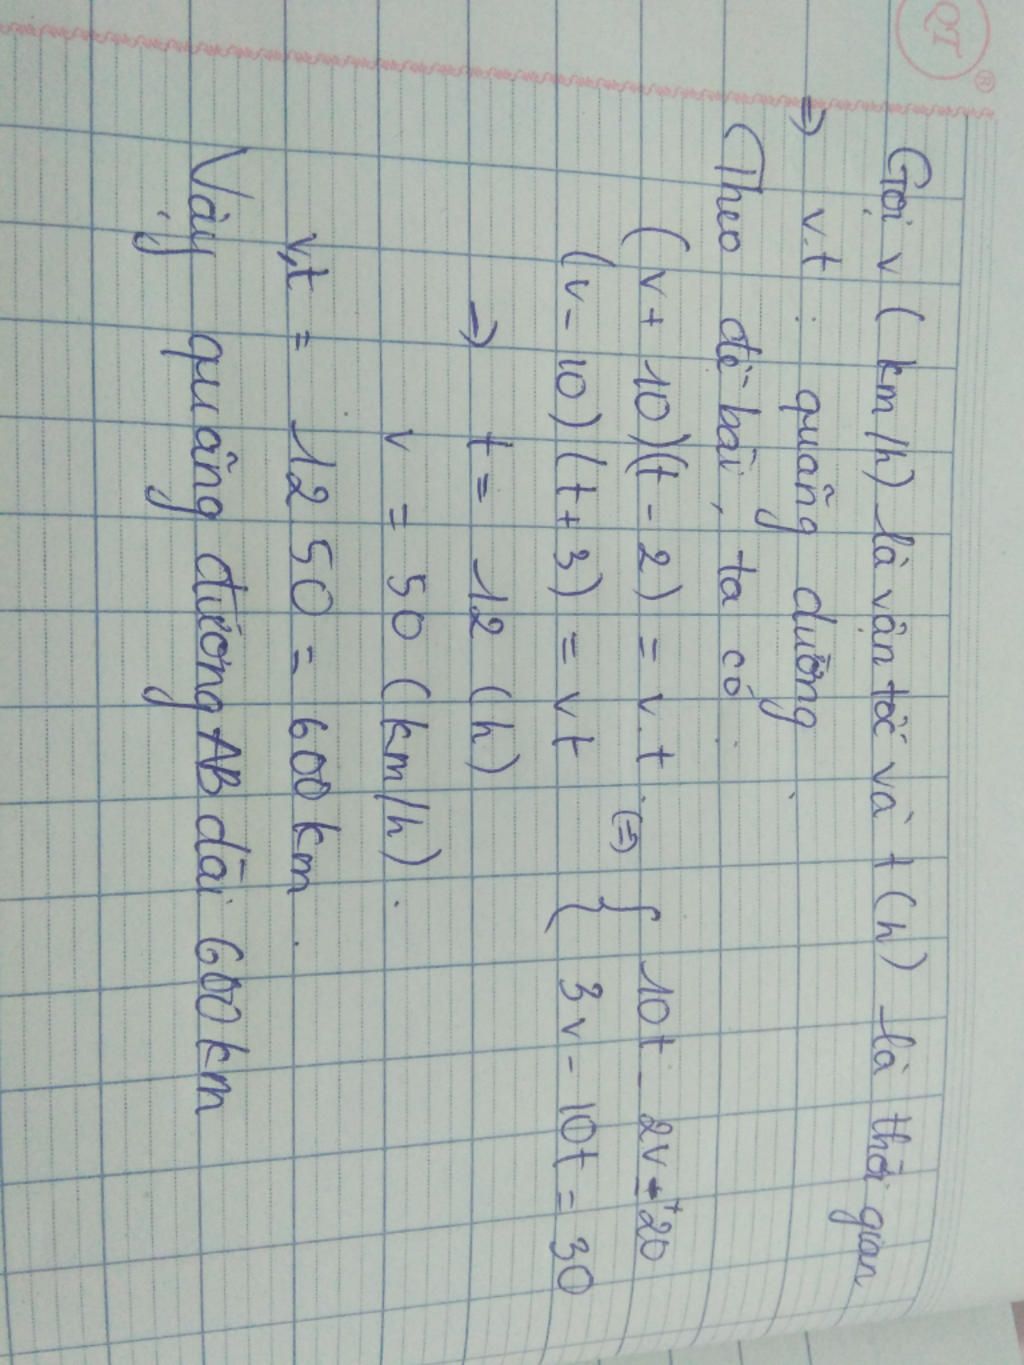 QT ®
Gọi v (km/h) là vận tốc và t (h) là thời gian
=> v.t : quãng đường
Theo đề bài, ta có:
(v + 10)(t - 2) = v.t (=) { 10t - 2v = +20
(v - 10)(t + 3) = v t { 3v - 10t = 30
=> t = 12 (h)
v = 50 (km/h).
v,t = 12 50 = 600 km.
Vậy quãng đường AB dài 600 km